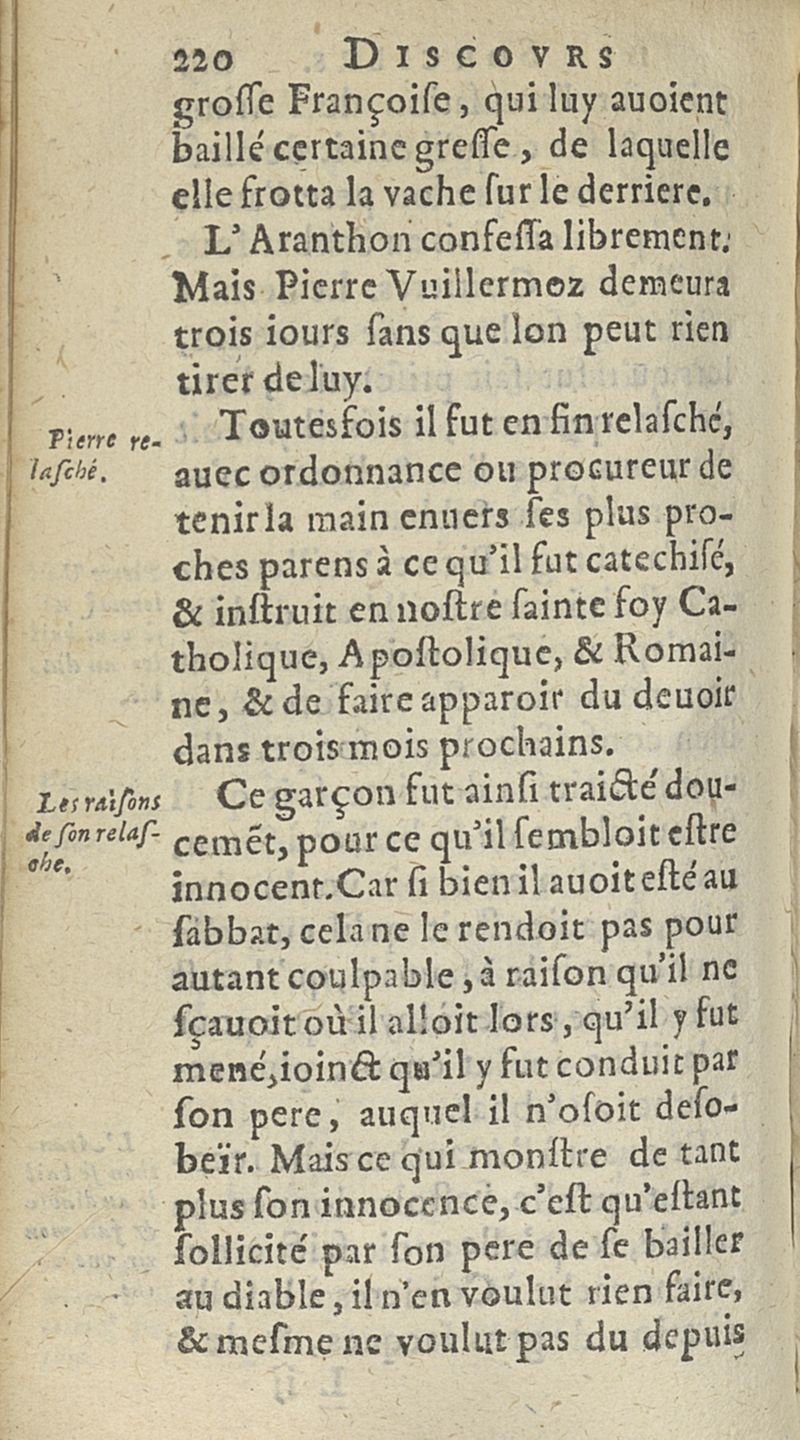 220 DISCOVRS
grosſe Françoiſe, qui luy auoient
baillé certaine greſſe, de laquelle
elle frotta la vache ſur le derriere.
L'Aranthon confeſſa librement.
Mais Pierre Vuillermoz demeura
trois iours ſans que lon peut rien
tirer de luy.
Toutesfois il fut en fin relaſché,
Pierre re-
laſché.
auec ordonnance ou procureur de
tenir la main enuers ſes plus pro-
ches parens à ce qu'il fut catechiſé,
& inſtruit en noſtre ſainte foy Ca-
tholique, Apoſtolique, & Romai-
ne, & de faire apparoir du deuoir
dans trois mois prochains.
Ce garçon fut ainſi traicté dou-
Les raiſons
de ſon relaſ-
che.
cemẽt, pour ce qu'il ſembloit eſtre
innocent. Car ſi bien il auoit eſté au
ſabbat, cela ne le rendoit pas pour
autant coulpable, à raiſon qu'il ne
ſçauoit où il alloit lors, qu'il y fut
mené, ioinct qu'il y fut conduit par
ſon pere, auquel il n'oſoit deſo-
beïr. Mais ce qui monſtre de tant
plus ſon innocence, c'eſt qu'eſtant
ſollicité par ſon pere de ſe bailler
au diable, il n'en voulut rien faire,
& meſme ne voulut pas du depuis